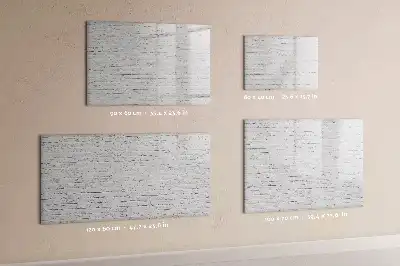 90 x 60 cm - 35.4 x 23.6 in
60 x 40 cm - 23.6 x 15.7 in
120 x 60 cm - 47.2 x 23.6 in
100 x 70 cm - 39.4 x 27.6 in